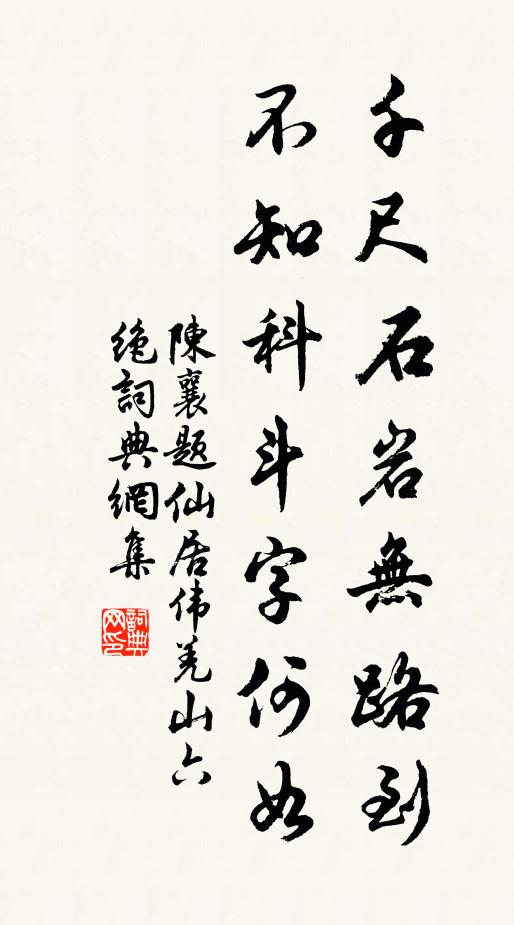 千尺石岩無路到
不知科斗字何如
陳襄題仙居伟羌山六
絶詞典網集
詞典网印